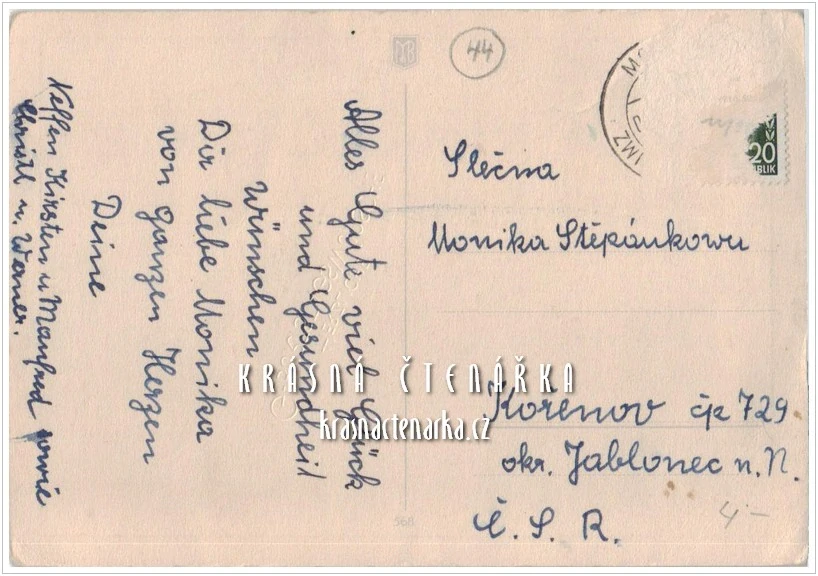 44
Alles Gute viel Glück
und Gesundheit
Wünschen
Dir liebe Monika
von ganzen Herzen
Deine
Neffen Kirsten u Manfred sowie
Christl u. Werner.
Slečna
Monika Stěpánkowu
Korenov čp 729
okr. Jablonec n. N.
Č. S. R.
20
BLIK
568
4-
KRÁSNÁ ČTENÁŘKA
krasnactenarka.cz